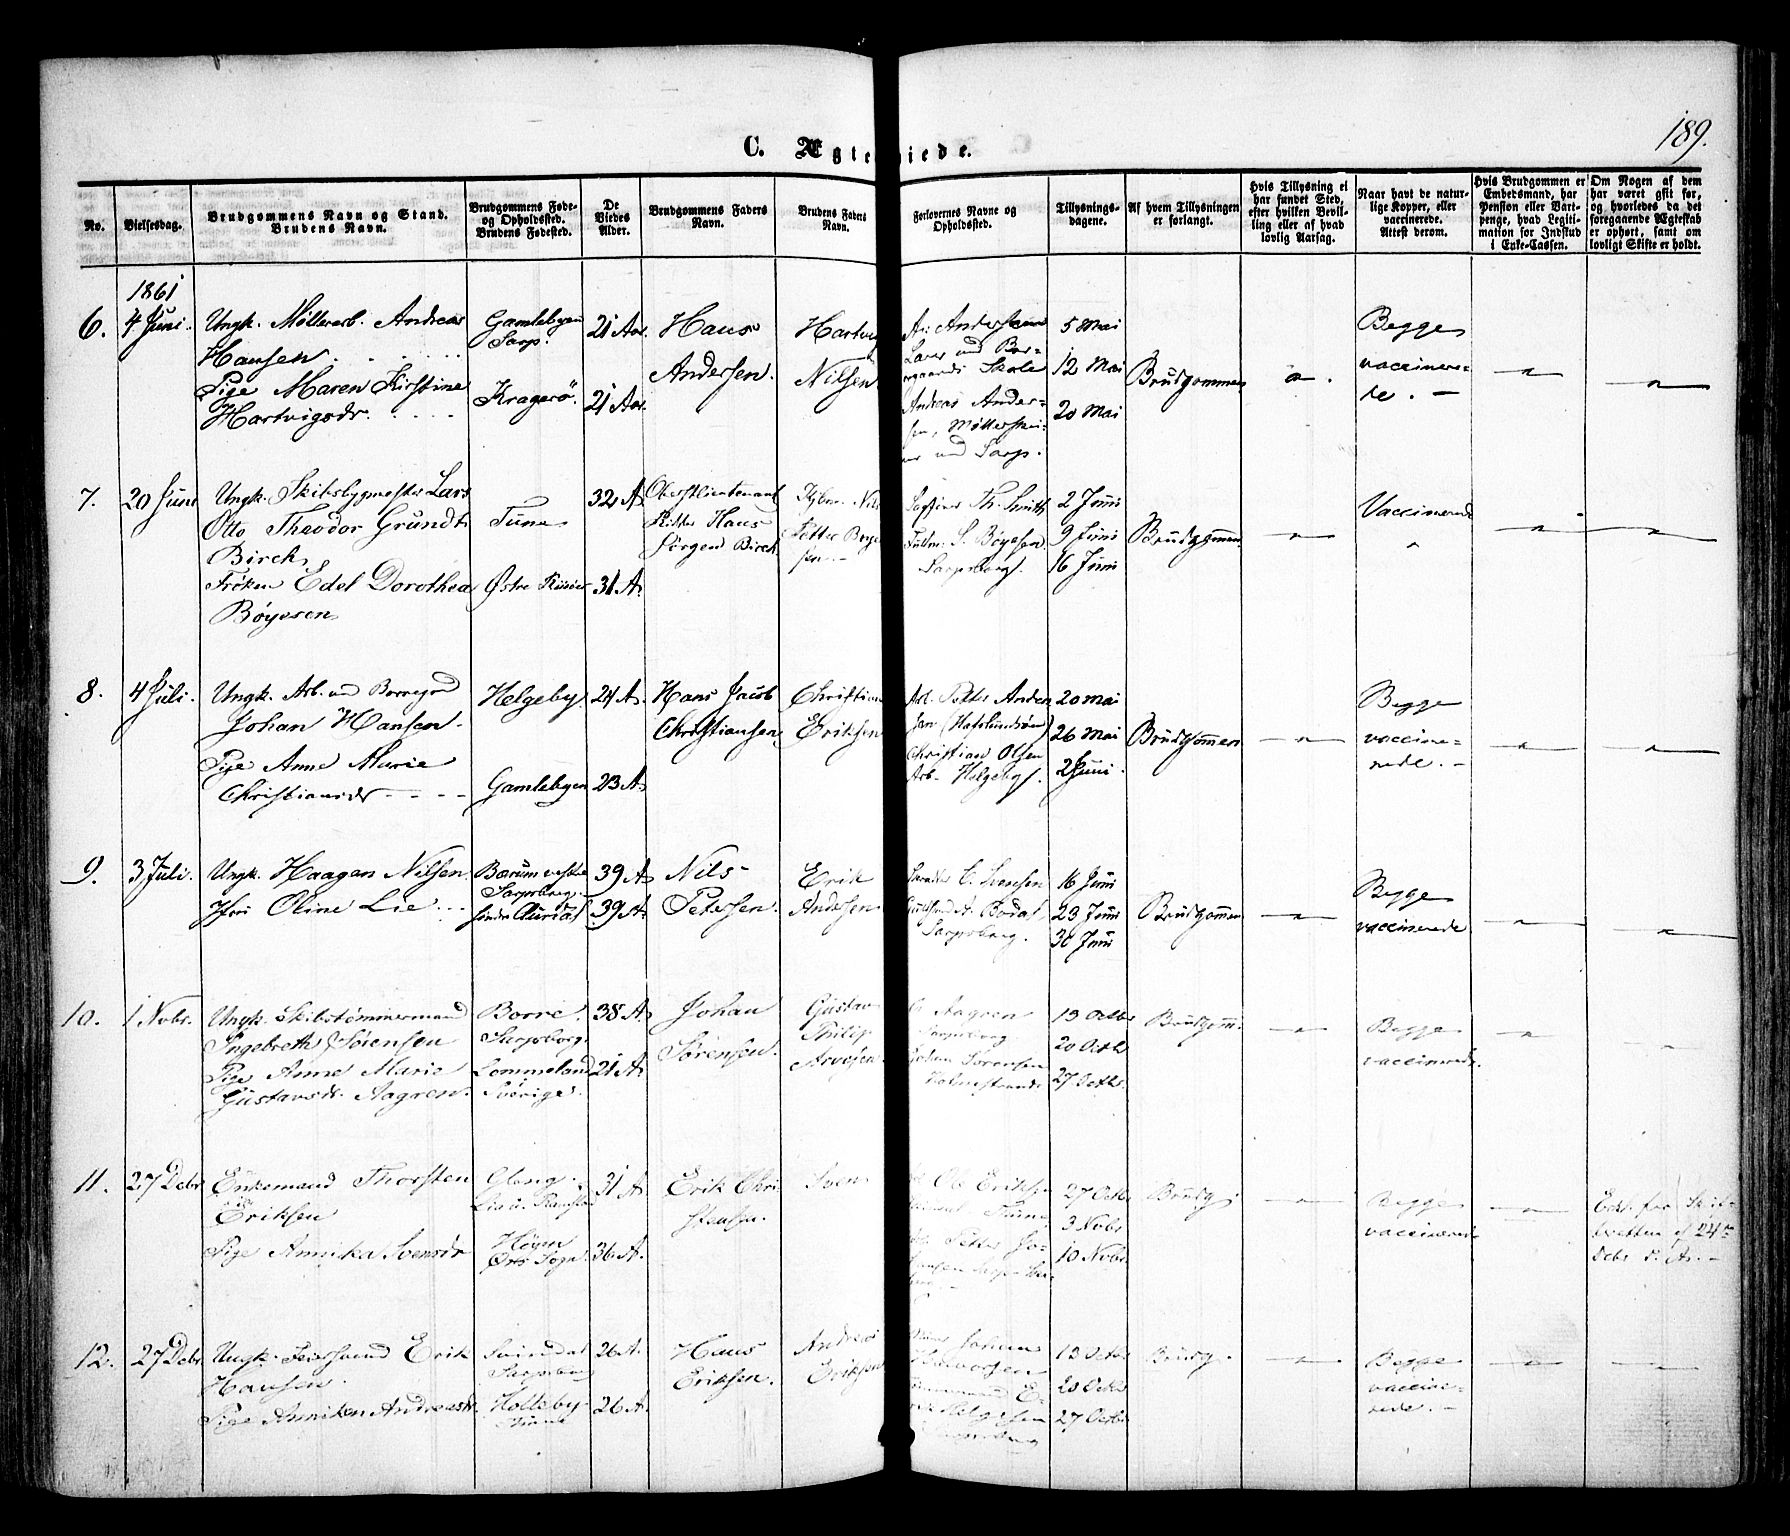 189.
C. Ægteviede.
No.
Vielsesdag.
Brudgommens Navn og Stand.
Brudens Navn.
Brudgommens Føde-
og Opholdssted.
Brudens Fødested.
De
Viedes
Alder.
Brudgommens Faders
Navn.
Brudens Faders
Navn.
Forlovernes Navne og
Opholdssted.
Tillysnings-
dagene.
Af hvem Tillysningen
er forlangt.
Hvis Tillysning ei
har fundet Sted,
efter hvilken Bevil-
ling eller af hvad
lovlig Aarsag.
Naar havt de natur-
lige Kopper, eller
vaccinerede.
Attest derom.
Hvis Brudgommen er
Embedsmand, har
Pension eller Vart-
penge, hvad Legiti-
mation for Indskud
i Enke-Cassen.
Om Nogen af dem
har været gift før,
og hvorledes da det
foregaaende Ægteskab
er ophørt, samt om
lovligt Skifte er holdt.
1861
6.
4 Juni.
Ungk. Møllerarb. Andreas
Hansen
Pige Maren Kirstine
Hartvigsdr.
Gamlebyen
Sarp.
Kragerö.
21 Aar
21 Aar.
Hans
Andersen.
Hartvig
Nilsen
Andersen
Lærer ved Bor-
regaards Skole
Andreas Ander-
sen,
ved Sarp.
5 Mai
12 Mai
20 Mai
Brudgommen
Begge
vaccinere-
de. -
7.
20 Juni
Ungk. Skibsbygmester Lars
Otto Theodor Grundt
Birch,
Frøken Edel Dorothea
Bøyesen
Tune
Østre Riisøer
32 A.
31 A.
Oberstlieutenant
Ridder Hans
Jörgen Birch
Nils
Petter Bøye
sen. -
Th. Smith
S. Bøyesen
Sarpsborg.
2 Juni
9 Juni
16 Juni
Brudgommen
Vaccinerede
8.
4 Juli.
Ungk. Arb. ved Borregrd
Johan Hansen.
Pige Anne Marie
Christiansdr
Helgeby
Gamlebyen
24 A.
23 A.
Hans Jacob
Christiansen
Christian
Eriksen
Arb. Petter Ander
sen (Hafslundsøen)
Christian Olsen
Arb. Helgeby.
20 Mai
26 Mai
2 Juni.
Brudgommen
Begge
vaccine-
rede. -
9.
3 Juli.
Ungk. Haagen Nilsen
Oline Lie
Bærum vestre
Sarpsborg.
39 A.
39 A.
Nils
Petersen.
Erik
Andersen
C. Svensen
Sarpsborg.
16 Juni
23 Juni
30 Juni
Brudgommen
Begge
vaccinerede
10.
1 Nobr.
Ungk. Skibstømmermand
Ingebreth Sørensen
Pige Anne Marie
Gustavsdr. Aagren.
Borre.
Sarpsborg.
Lommeland
Sverige.
38 A.
21 A.
Johan
Sørensen.
Gustav
Philip
Arvesen
Aagren
Sarpsborg
Johan Sørensen
Holmestrand
13 Octbr
20 Octb
27 Octbr.
Brudgom.
Begge
vaccinerede.
11.
27 Debr
Enkemand Thorsten
Eriksen
Pige Annika Svensdr
Gleng.
31 A.
36 A.
Erik Chri
stensen.
Sven
Ole Eriks.
Tune
Petter Jo-
27 Octbr
3 Nobr
10 Nobr.
Brudg.
Begge
vaccinerede
24de
Debr d. A. -
12.
27 Debr
Ungk. Erik
Hansen.
Pige Anniken Andreasdr
Svindal
Sarpsborg
Holleby
Tune
26 A.
26 A.
Hans
Eriksen.
Andreas
Eriksen
Johan
Halvorsen
Helgesen
Sarpsborg
13 Octbr
20 Octbr
27 Octbr
Brudg.
Begge
vaccine-
rede. -